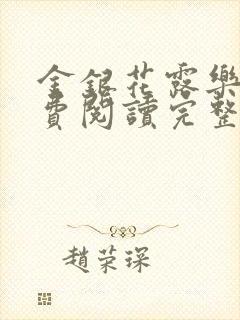 金銀花露樂
費閱讀完整
趙荣琛